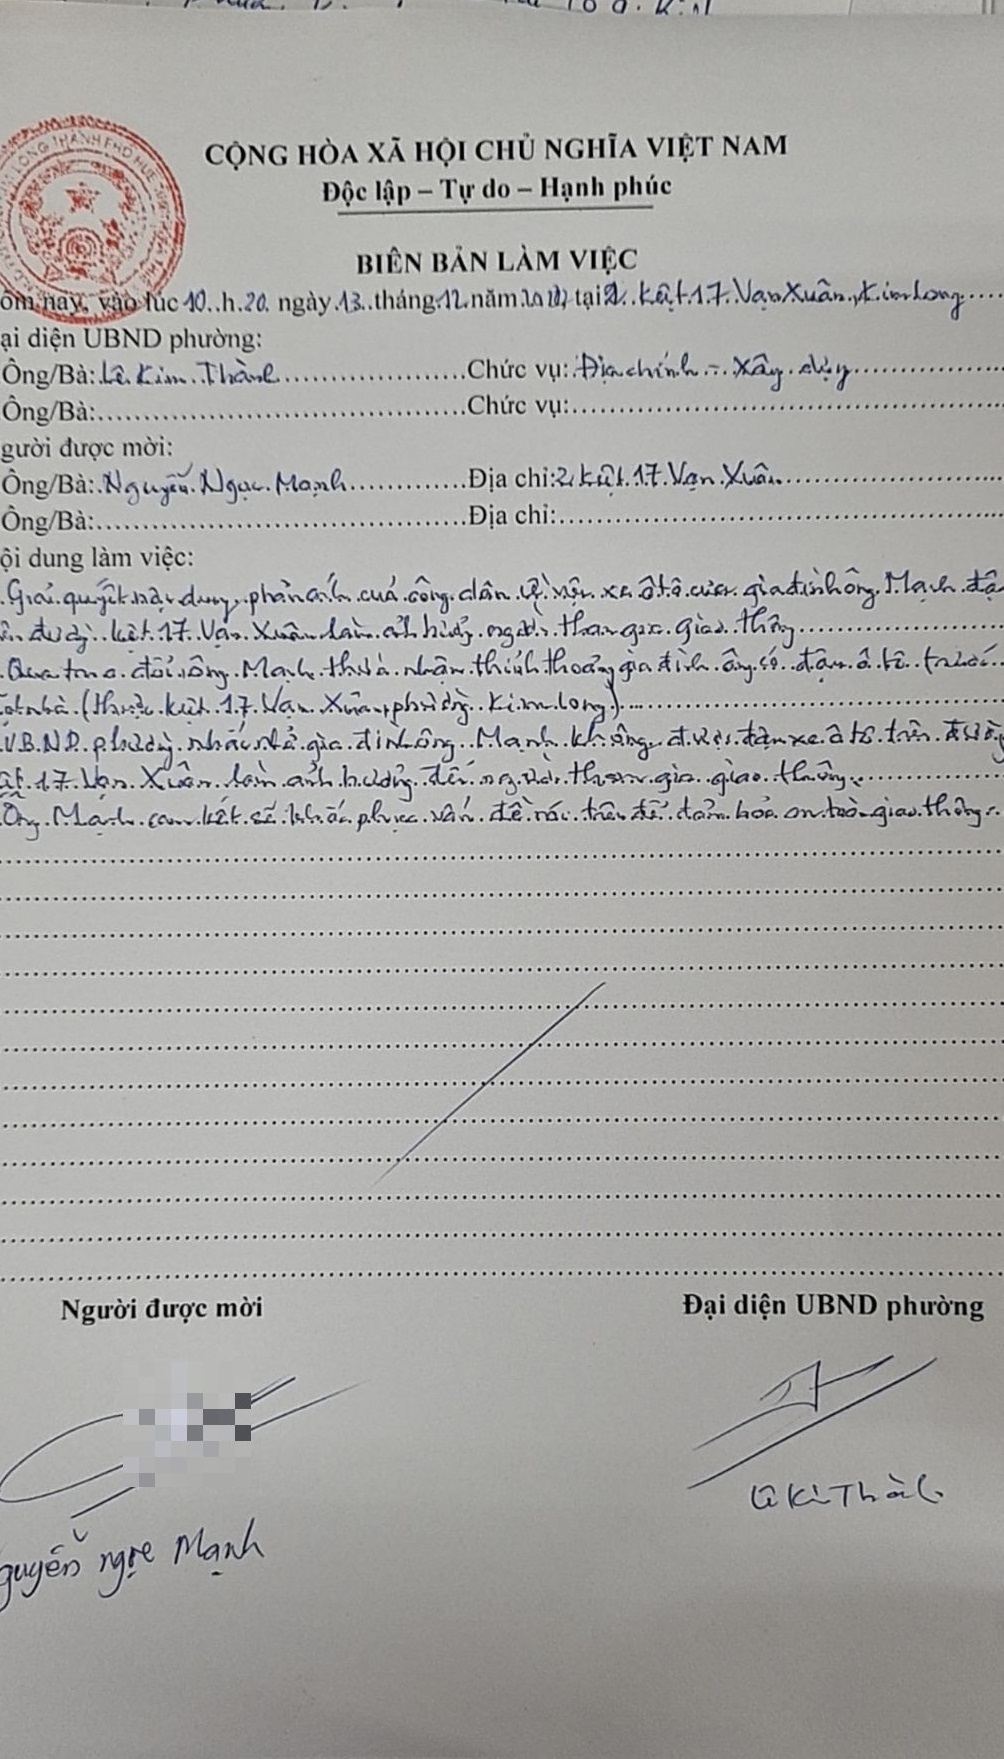 CỘNG HÒA XÃ HỘI CHỦ NGHĨA VIỆT NAM
Độc lập – Tự do – Hạnh phúc
BIÊN BẢN LÀM VIỆC
ôm nay, vào lúc 10 h 20 ngày 13 tháng 12 năm tại 2 kiệt 17 Vạn Xuân, Kim Long
ại diện UBND phường:
Ông/Bà: Lê Kim Thành Chức vụ: Địa chính - Xây dựng
Ông/Bà: Chức vụ:
gười được mời:
Ông/Bà: Nguyễn Ngọc Mạnh Địa chỉ: 2 kiệt 17 Vạn Xuân
Ông/Bà: Địa chỉ:
ội dung làm việc:
Giải quyết nội dung phản ánh của công dân về việc xe ô tô của gia đình ông Mạnh đậ
ên đường kiệt 17 Vạn Xuân làm ảnh hưởng người tham gia giao thông
Qua trao đổi ông Mạnh thừa nhận thỉnh thoảng gia đình ông có đậu ô tô trước
nhà (thuộc kiệt 17 Vạn Xuân, phường Kim Long)
UBND phường nhắc nhở gia đình ông Mạnh không được đậu xe ô tô trên đường
ệt 17 Vạn Xuân làm ảnh hưởng đến người tham gia giao thông.
Ông Mạnh cam kết sẽ khắc phục vấn đề nói trên để đảm bảo an toàn giao thông.
Người được mời Đại diện UBND phường
Lê Kim Thành
guyễn ngọc Mạnh